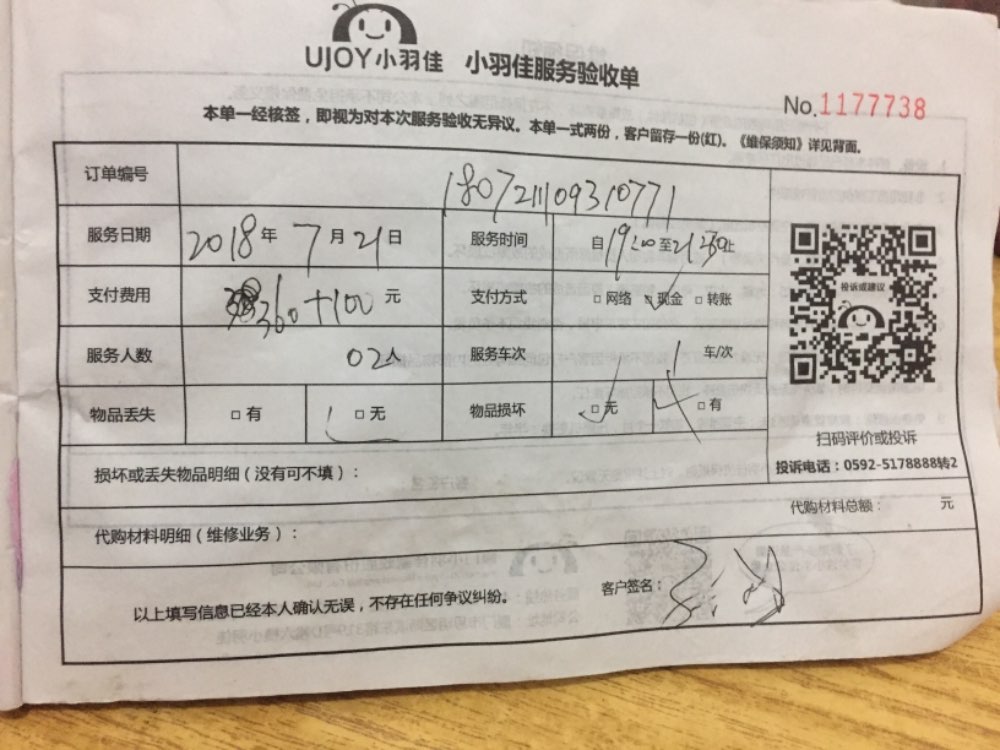 UJOY小羽佳 小羽佳服务验收单
No.1177738
本单一经核签，即视为对本次服务验收无异议。本单一式两份，客户留存一份(红)。《维保须知》详见背面。
订单编号 180721109310771
服务日期 2018年7月21日 服务时间 自19:00至21:50止
支付费用 360+100元 支付方式 □网络 □现金 □转账
服务人数 02人 服务车次 1 车/次
物品丢失 □有 □无 物品损坏 □无 □有
投诉或建议
扫码评价或投诉
投诉电话：0592-5178888转2
损坏或丢失物品明细（没有可不填）：
代购材料明细（维修业务）： 代购材料总额： 元
以上填写信息已经本人确认无误，不存在任何争议纠纷。 客户签名：